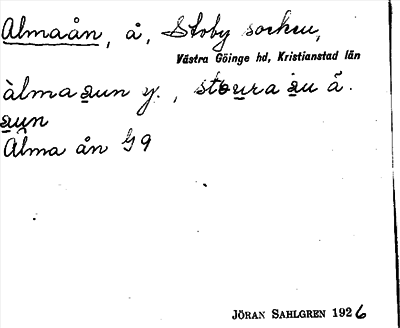 Almaån, å, Stoby socken,
Västra Göinge hd, Kristianstad län
àlmaa̲un y., sto̲u̲ra a̲u å̃.
a̲u̲n
Alma ån G9
JÖRAN SAHLGREN 1926